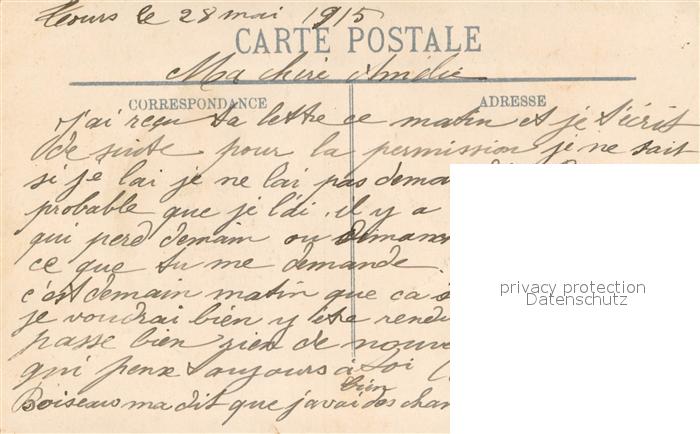 le 28 mai 1915
CARTE POSTALE
Ma chère Amélie
CORRESPONDANCE
ADRESSE
j'ai reçu ta lettre ce matin et je t'écrit
de suite pour la permission je ne sait
si je lai je ne lai pas dema
probable que je l'di. il y a
qui perd demain ou dimanc
ce que tu me demande.
c'est demain matin que ca s
je voudrai bien y etre rendu
passe bien rien de nouve
qui penx toujours à toi
bien
Boiseaus ma dit que j'avai des chan
privacy protection
Datenschutz